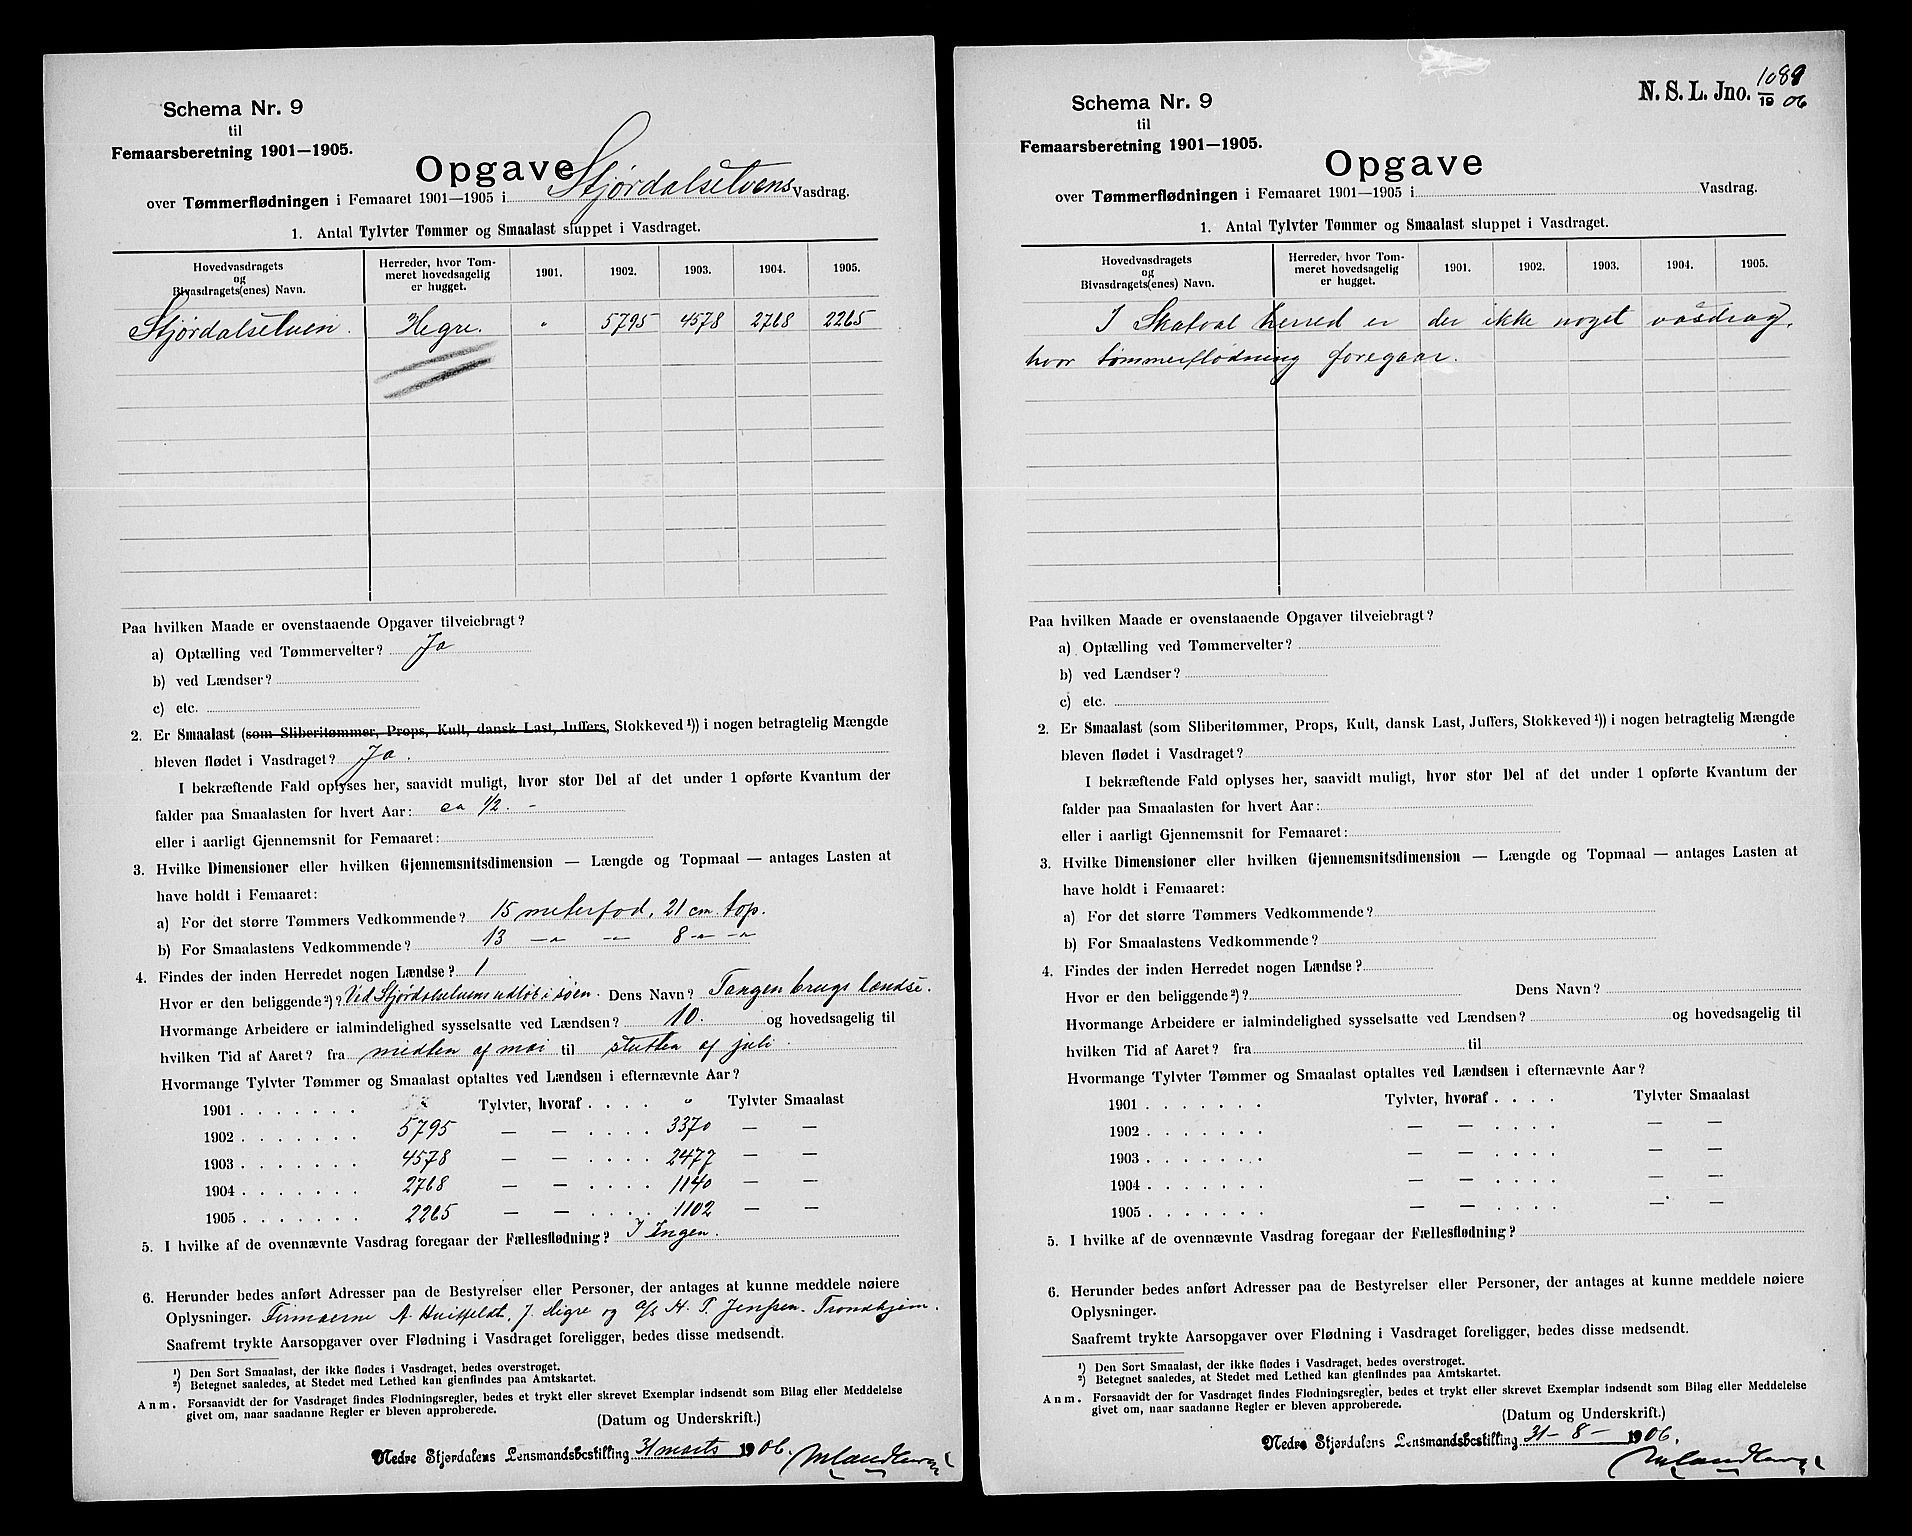 Schema Nr. 9
til
Femaarsberetning 1901—1905.
Opgave
over Tømmerflødningen i Femaaret 1901—1905 i Stjørdalselvens Vasdrag.
1. Antal Tylvter Tømmer og Smaalast sluppet i Vasdraget.
Hovedvasdragets og Bivasdragets(enes) Navn. Herreder, hvor Tømmeret hovedsagelig er hugget. 1901. 1902. 1903. 1904. 1905.
Stjørdalselven. Hegre. " 5795 4578 2768 2265
Paa hvilken Maade er ovenstaaende Opgaver tilveiebragt?
a) Optælling ved Tømmervelter? Ja
b) ved Lændser?
c) etc.
2. Er Smaalast (som Sliberitømmer, Props, Kult, dansk Last, Juffers, Stokkeved ¹)) i nogen betragtelig Mængde
bleven flødet i Vasdraget? Ja.
I bekræftende Fald oplyses her, saavidt muligt, hvor stor Del af det under 1 opførte Kvantum der
falder paa Smaalasten for hvert Aar: ca 1/2. -
eller i aarligt Gjennemsnit for Femaaret:
3. Hvilke Dimensioner eller hvilken Gjennemsnitsdimension — Længde og Topmaal — antages Lasten at
have holdt i Femaaret:
a) For det større Tømmers Vedkommende? 15 meterfod, 21 cm. top.
b) For Smaalastens Vedkommende? 13 —"— —"— 8 —"— —"—
4. Findes der inden Herredet nogen Lændse? 1
Hvor er den beliggende²)? Ved Stjørdalselvens udløb i søen. Dens Navn? Tangen brugs lændse.
Hvormange Arbeidere er ialmindelighed sysselsatte ved Lændsen? 10. og hovedsagelig til
hvilken Tid af Aaret? fra midten af mai til slutten af juli.
Hvormange Tylvter Tømmer og Smaalast optaltes ved Lændsen i efternævnte Aar?
1901 . . . . . . . Tylvter, hvoraf . . . . " Tylvter Smaalast
1902 . . . . . . . 5795 — — . . . . 3370 — —
1903 . . . . . . . 4578 — — . . . . 2477 — —
1904 . . . . . . . 2768 — — . . . . 1140 — —
1905 . . . . . . . 2265 — — . . . . 1102 — —
5. I hvilke af de ovennævnte Vasdrag foregaar der Fællesflødning? I Ingen.
6. Herunder bedes anført Adresser paa de Bestyrelser eller Personer, der antages at kunne meddele nøiere
Oplysninger. Firmaerne A. Huitfeldt, J. Digre og A/S H. P. Jenssen. Trondhjem.
Saafremt trykte Aarsopgaver over Flødning i Vasdraget foreligger, bedes disse medsendt.
¹) Den Sort Smaalast, der ikke flødes i Vasdraget, bedes overstrøget.
²) Betegnet saaledes, at Stedet med Lethed kan gjenfindes paa Amtskartet.
Anm. Forsaavidt der for Vasdraget findes Flødningsregler, bedes et trykt eller skrevet Exemplar indsendt som Bilag eller Meddelelse
givet om, naar saadanne Regler er bleven approberede.
(Datum og Underskrift.)
Nedre Stjørdalens Lensmandsbestilling 31 marts 1906.
N. S. L. Jno. 1089/1906
Schema Nr. 9
til
Femaarsberetning 1901—1905.
Opgave
over Tømmerflødningen i Femaaret 1901—1905 i Vasdrag.
1. Antal Tylvter Tømmer og Smaalast sluppet i Vasdraget.
Hovedvasdragets og Bivasdragets(enes) Navn. Herreder, hvor Tømmeret hovedsagelig er hugget. 1901. 1902. 1903. 1904. 1905.
I Skatval herred er der ikke noget vasdrag,
hvor tømmerflødning foregaar.
Paa hvilken Maade er ovenstaaende Opgaver tilveiebragt?
a) Optælling ved Tømmervelter?
b) ved Lændser?
c) etc.
2. Er Smaalast (som Sliberitømmer, Props, Kult, dansk Last, Juffers, Stokkeved ¹)) i nogen betragtelig Mængde
bleven flødet i Vasdraget?
I bekræftende Fald oplyses her, saavidt muligt, hvor stor Del af det under 1 opførte Kvantum der
falder paa Smaalasten for hvert Aar:
eller i aarligt Gjennemsnit for Femaaret:
3. Hvilke Dimensioner eller hvilken Gjennemsnitsdimension — Længde og Topmaal — antages Lasten at
have holdt i Femaaret:
a) For det større Tømmers Vedkommende?
b) For Smaalastens Vedkommende?
4. Findes der inden Herredet nogen Lændse?
Hvor er den beliggende²)? Dens Navn?
Hvormange Arbeidere er ialmindelighed sysselsatte ved Lændsen? og hovedsagelig til
hvilken Tid af Aaret? fra til
Hvormange Tylvter Tømmer og Smaalast optaltes ved Lændsen i efternævnte Aar?
1901 . . . . . . . Tylvter, hvoraf . . . . Tylvter Smaalast
1902 . . . . . . . — — . . . . — —
1903 . . . . . . . — — . . . . — —
1904 . . . . . . . — — . . . . — —
1905 . . . . . . . — — . . . . — —
5. I hvilke af de ovennævnte Vasdrag foregaar der Fællesflødning?
6. Herunder bedes anført Adresser paa de Bestyrelser eller Personer, der antages at kunne meddele nøiere
Oplysninger.
Saafremt trykte Aarsopgaver over Flødning i Vasdraget foreligger, bedes disse medsendt.
¹) Den Sort Smaalast, der ikke flødes i Vasdraget, bedes overstrøget.
²) Betegnet saaledes, at Stedet med Lethed kan gjenfindes paa Amtskartet.
Anm. Forsaavidt der for Vasdraget findes Flødningsregler, bedes et trykt eller skrevet Exemplar indsendt som Bilag eller Meddelelse
givet om, naar saadanne Regler er bleven approberede.
(Datum og Underskrift.)
Nedre Stjørdalens Lensmandsbestilling 31-8- 1906.